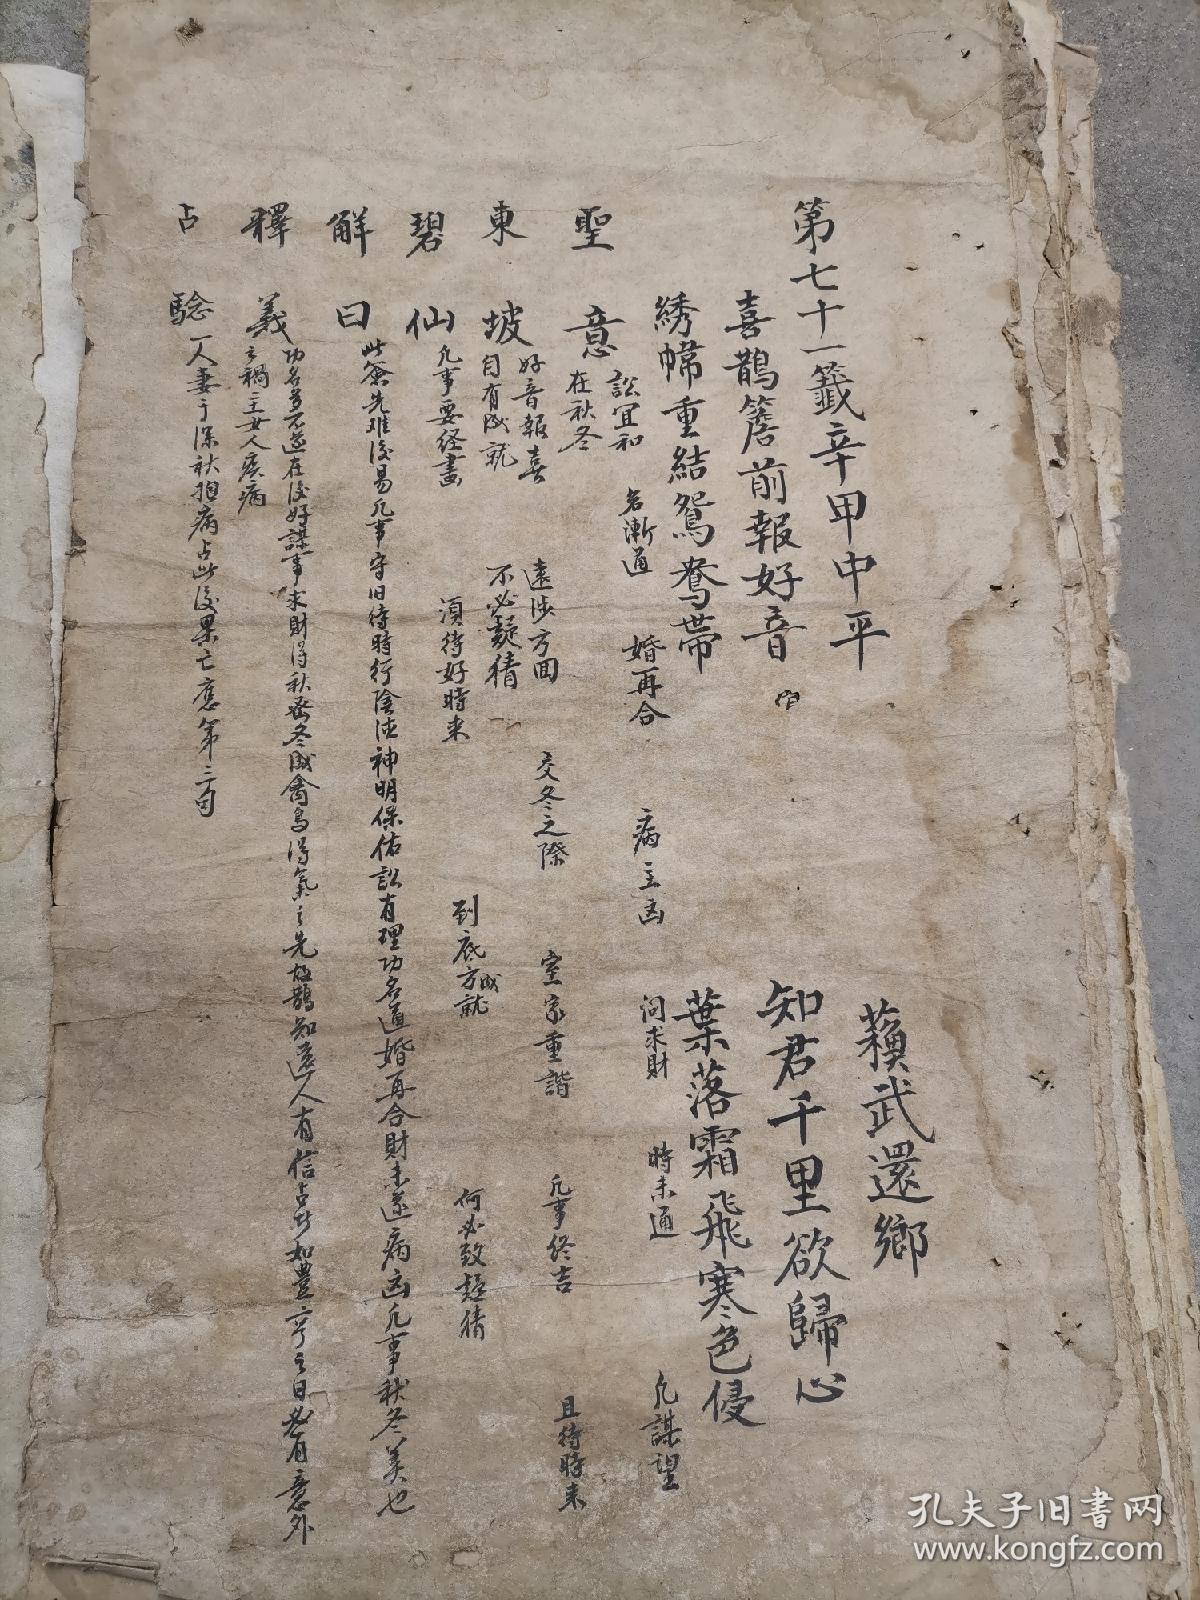 第七十一籤辛甲中平
蘓武還鄉
喜鵲簷前報好音
知君千里欲歸心
綉幃重結鴛鴦帶
葉落霜飛寒色侵
聖意
訟宜和 名漸通 婚再合 病主凶 问求財 時未通 凢謀望
在秋冬
東坡
好音報喜 遠涉方回 交冬之際 室家重諧 凢事终吉 且待時来
自有成就 不必疑猜
碧仙
凢事要经畫 須待好時来 到底方成就 何必致疑猜
解曰
此簽先难後易凢事守旧待時行陰德神明保佑訟有理功名通婚再合財未遂病凶凢事秋冬美也
釋義
功名若不遂在後好謀事求財得秋蚕冬成禽鳥得氣之先故鵲知遠人有信占此如豊亨之日必有意外
之禍主女人疾病
占驗
一人妻于深秋抱病占此後果亡應第三句
孔夫子旧书网
www.kongfz.com